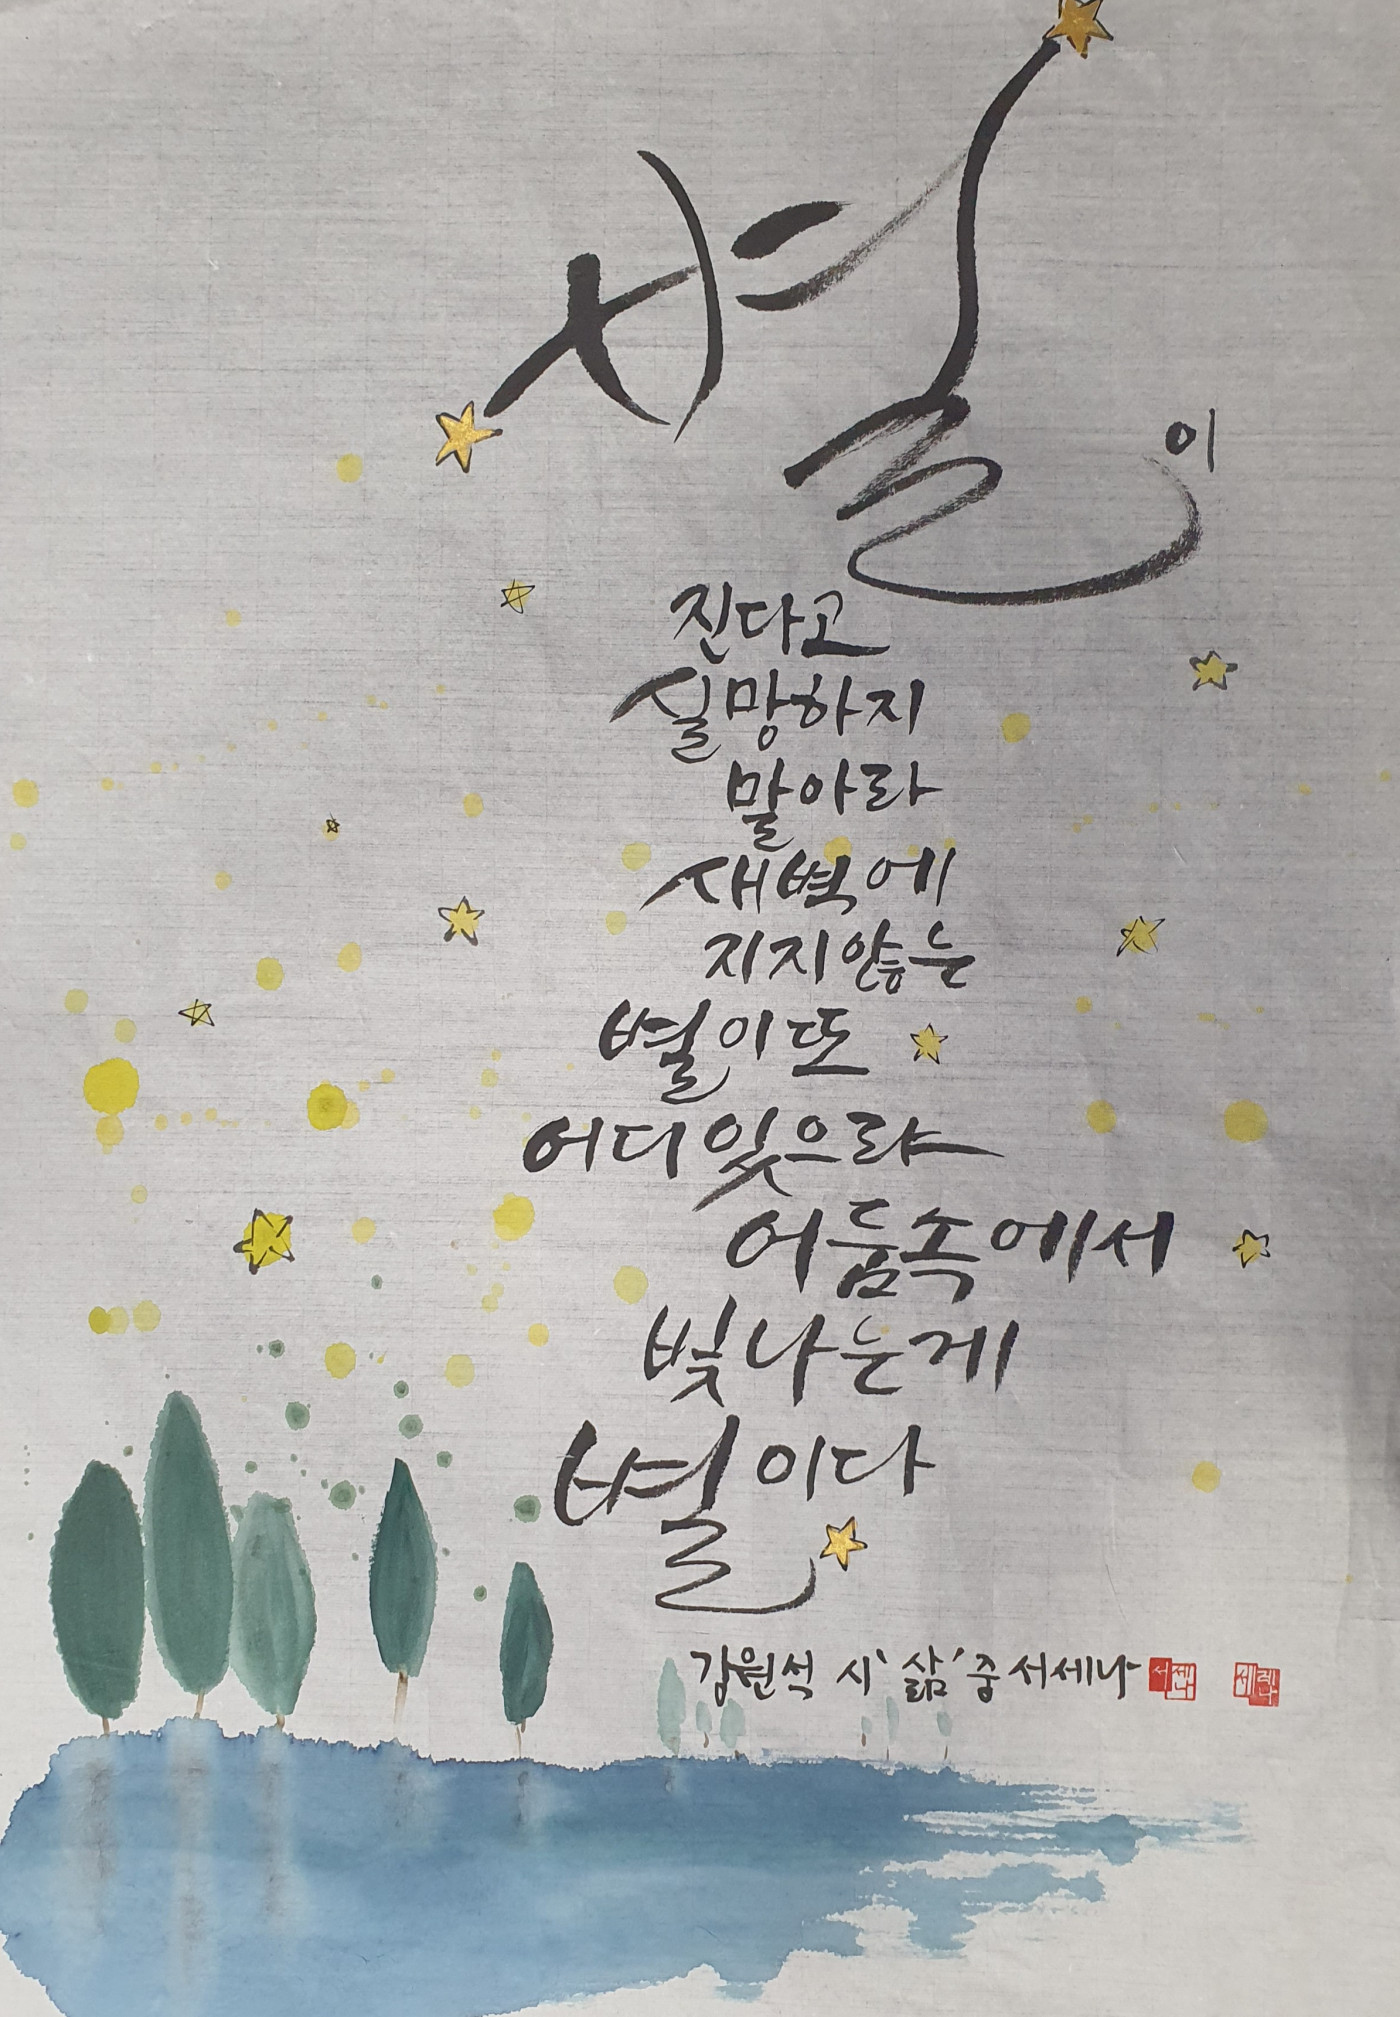 별이
진다고
실망하지
말아라
새벽에
지지않는
별이 또
어디 있으랴
어둠속에서
빛나는게
별이다
김원석 시 '삶' 중 서세나